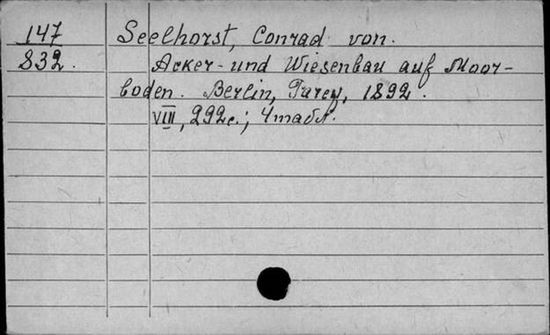 147 Seelhorst, Conrad von.
832. Acker- und Wiesenbau auf Moor-
boden. Berlin, Parey, 1892.
VIII, 292 с.; 4 табл.